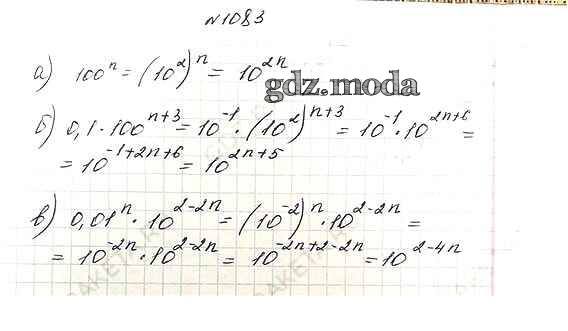 №1083
а) 100ⁿ = (10²)ⁿ = 10²ⁿ
gdz.moda
б) 0,1·100ⁿ⁺³ = 10⁻¹·(10²)ⁿ⁺³ = 10⁻¹·10²ⁿ⁺⁶ =
= 10⁻¹⁺²ⁿ⁺⁶ = 10²ⁿ⁺⁵
в) 0,01ⁿ·10²⁻²ⁿ = (10⁻²)ⁿ·10²⁻²ⁿ =
= 10⁻²ⁿ·10²⁻²ⁿ = 10⁻²ⁿ⁺²⁻²ⁿ = 10²⁻⁴ⁿ